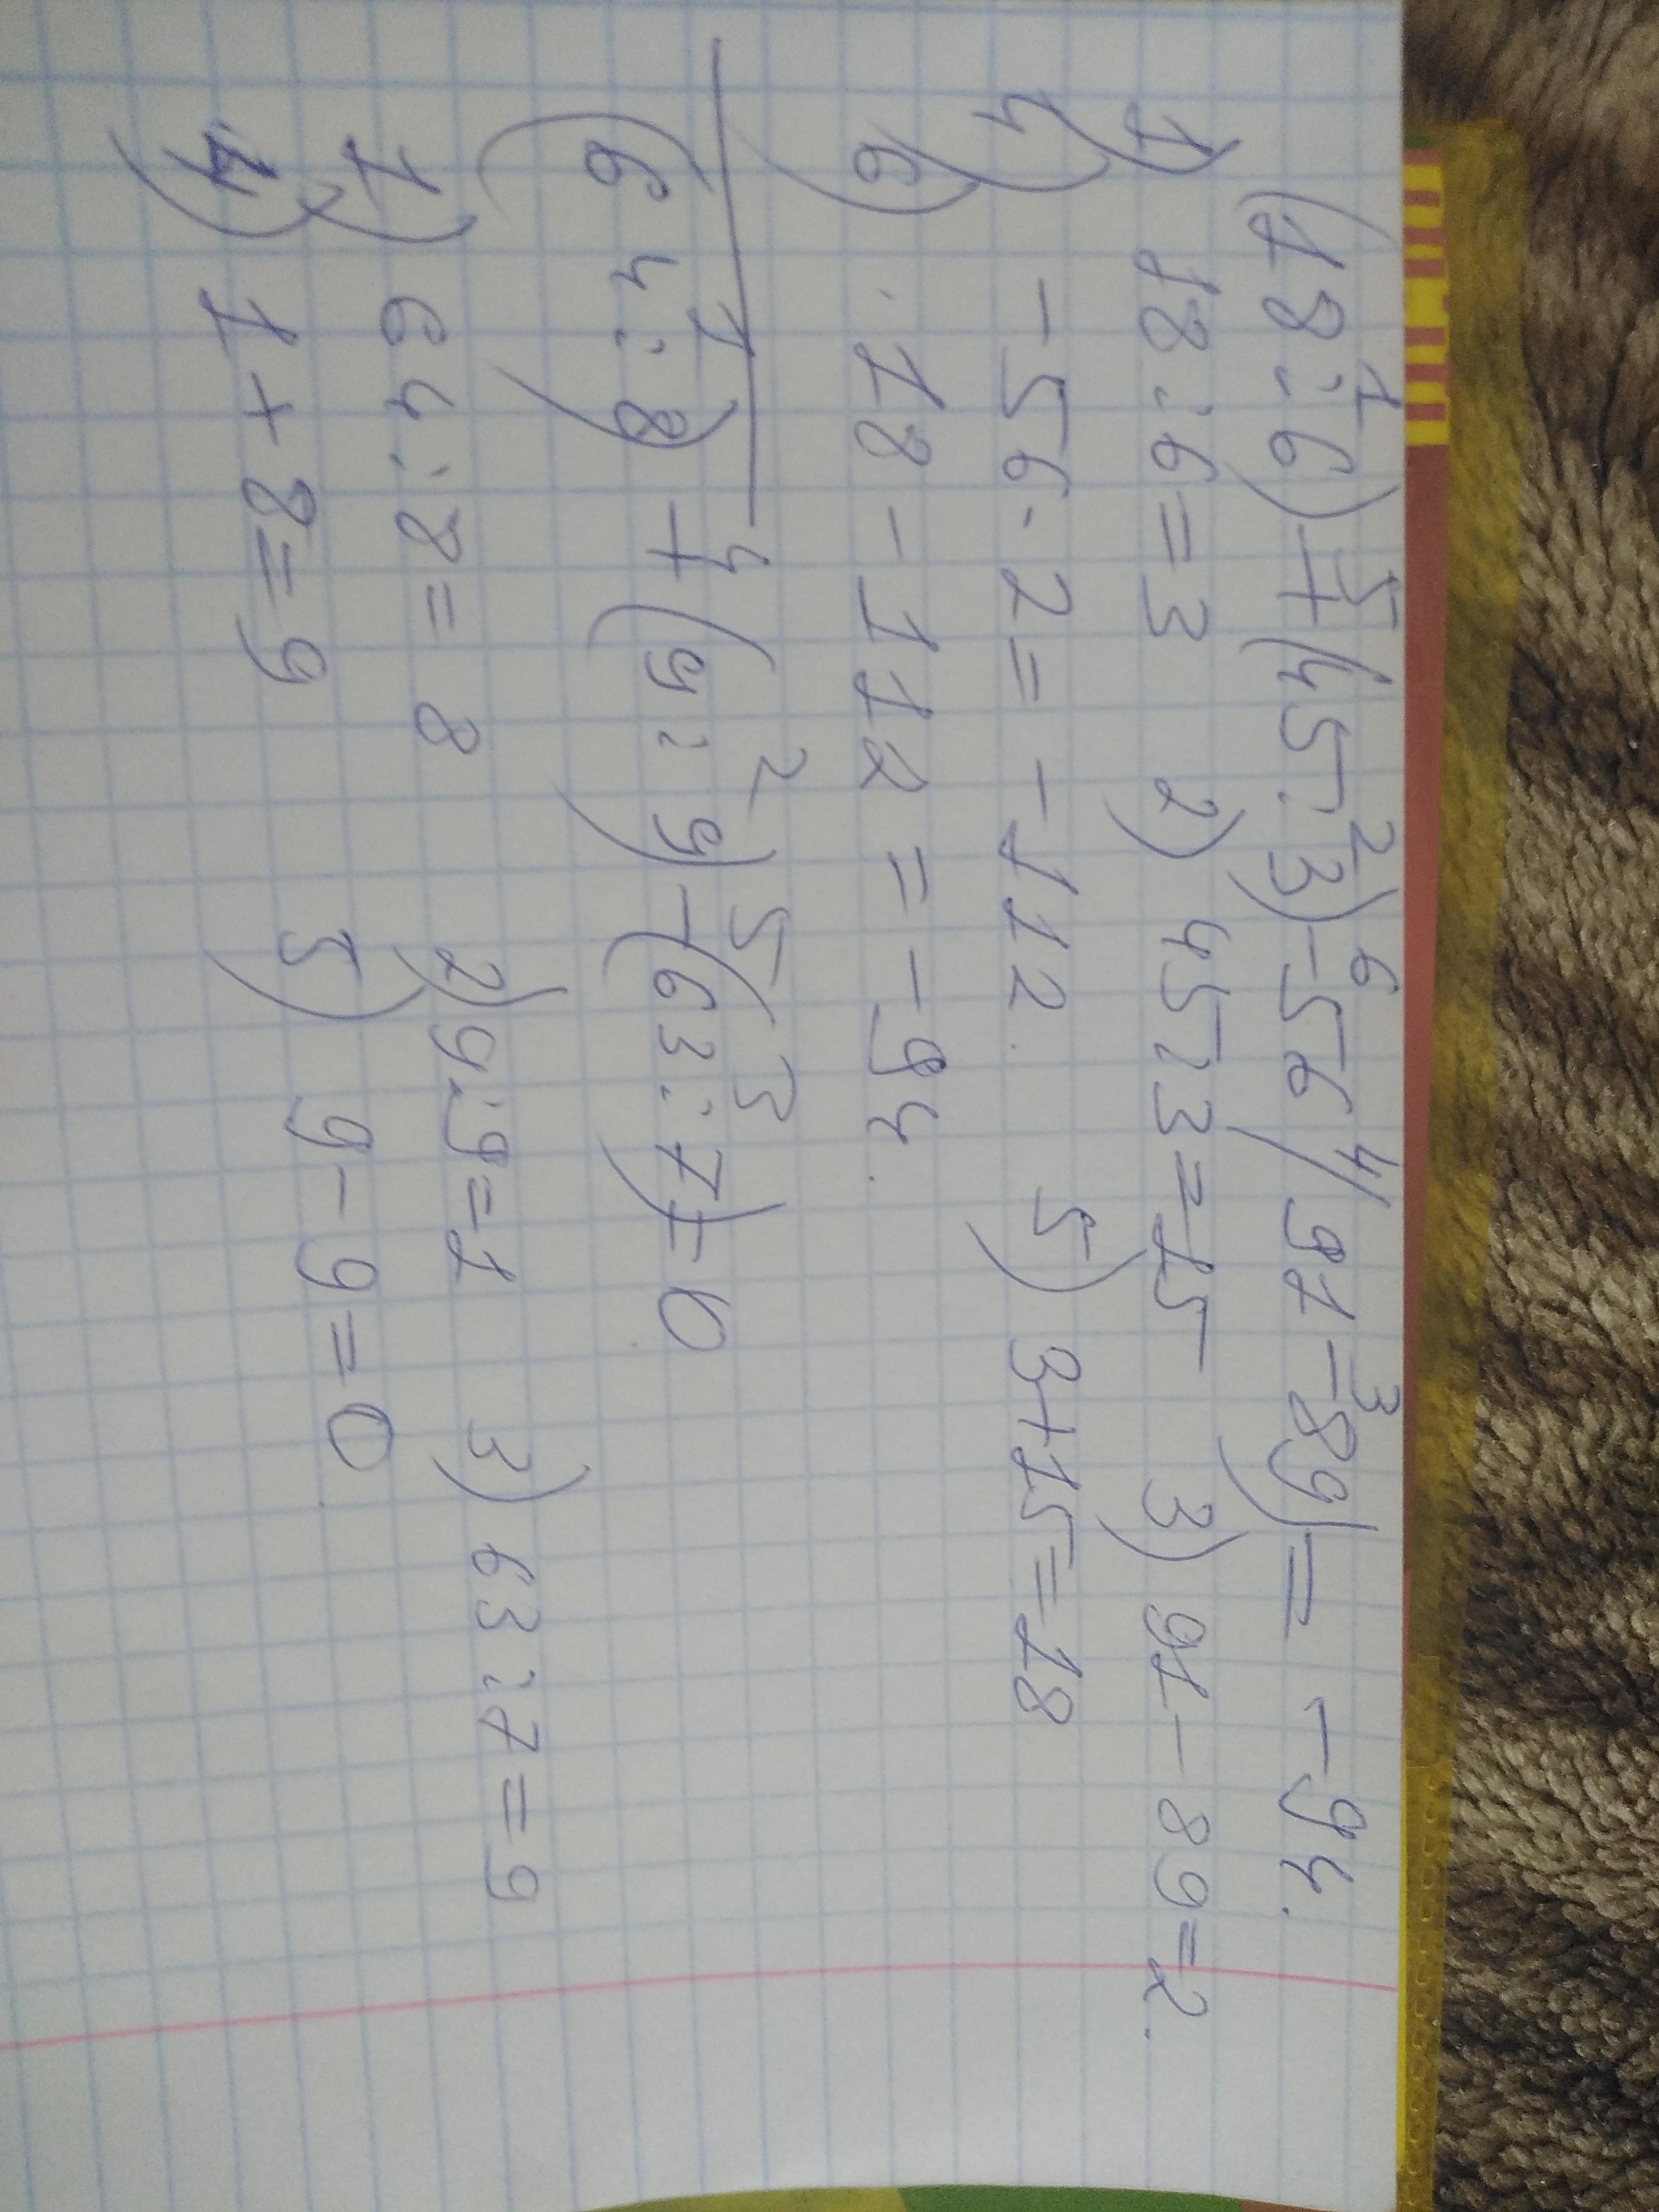 (18:6)+(45:3)-56(91-89)= -94.
1) 18:6=3 2) 45:3=15 3) 91-89=2.
4) -56·2= -112. 5) 3+15=18
6) 18-112=-94.
(64:8)+(9:9)-(63:7)=0
1) 64:8=8 2) 9:9=1 3) 63:7=9
4) 1+8=9 5) 9-9=0